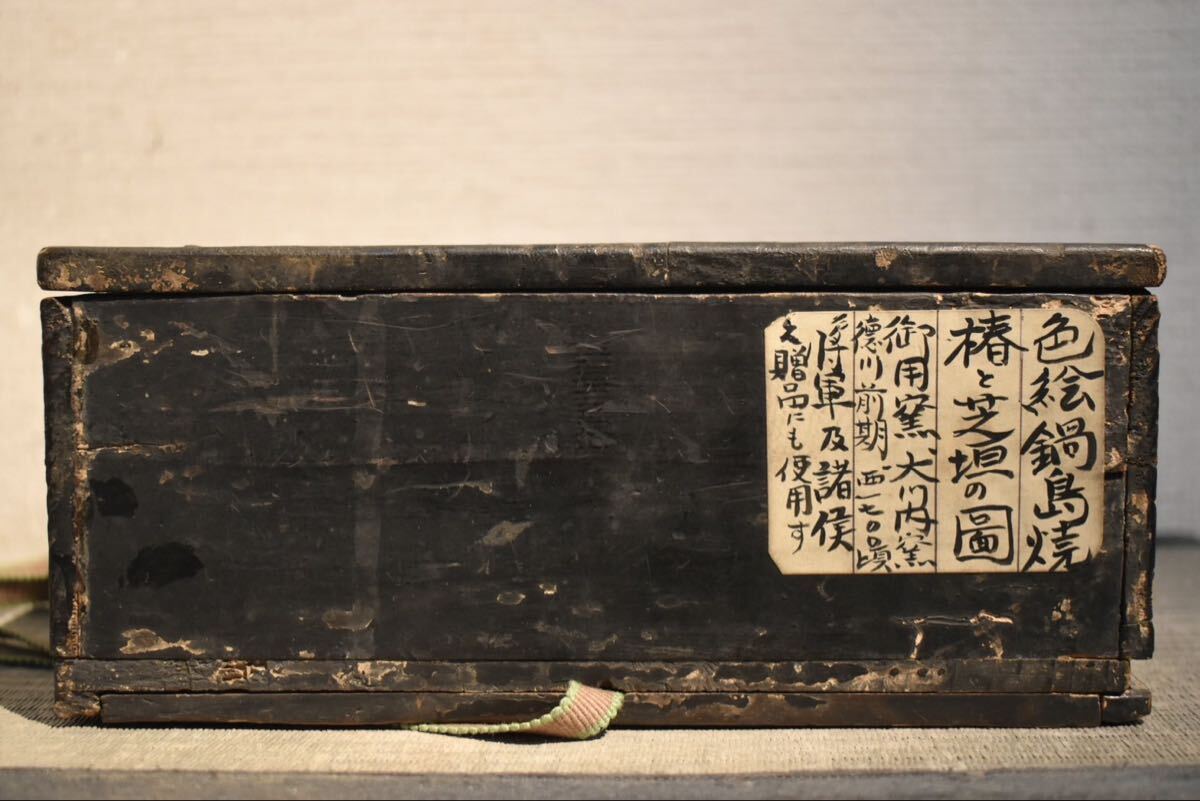 色絵鍋島焼
椿と芝垣の圖
御用窯犬川内窯
徳川前期西一七〇頃
将軍及諸侯
之贈品にも使用す